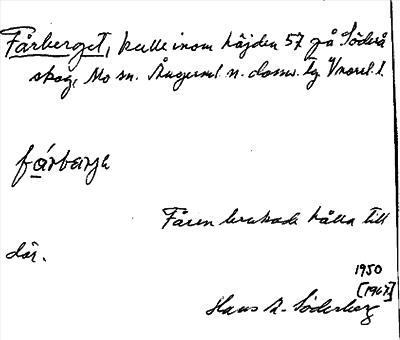 Fårberget, kulle inom höjden 57 på Söderå
skog, Mo sn. Ångerml. n. doms. tg Vnorrl. l.
fårbarje
Fåren brukade hålla till
där.
1950
[1967]
Hans A. Söderberg